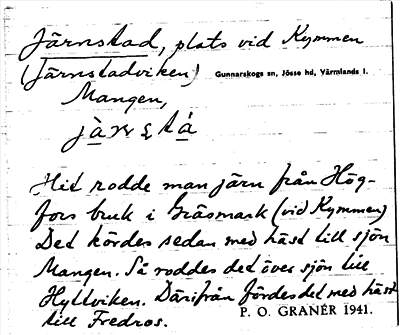 Järnstad, plats vid Kymmen
(Järnstadviken) Gunnarskogs sn, Jösse hd, Värmlands l.
Mangen,
Hit rodde man järn från Hög-
fors bruk i Gräsmark (vid Kymmen)
Det kördes sedan med häst till sjön
Mangen. Så roddes det över sjön till
Hyltviken. Därifrån fördes det med häst
till Fredros. P. O. GRANÉR 1941.